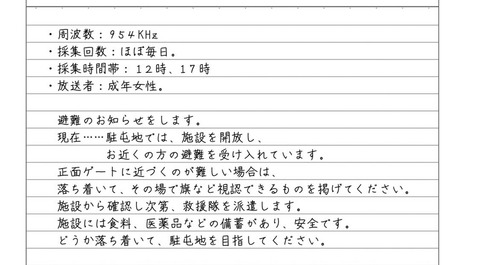 ・周波数：９５４KHz
・採集回数：ほぼ毎日。
・採集時間帯：１２時、１７時
・放送者：成年女性。
避難のお知らせをします。
現在……駐屯地では、施設を開放し、
お近くの方の避難を受け入れています。
正面ゲートに近づくのが難しい場合は、
落ち着いて、その場で旗など視認できるものを掲げてください。
施設から確認し次第、救援隊を派遣します。
施設には食料、医薬品などの備蓄があり、安全です。
どうか落ち着いて、駐屯地を目指してください。